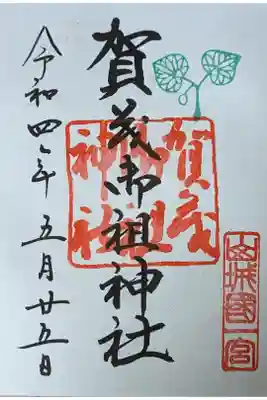 山城國一宮
賀茂御祖神社
賀茂御祖神社
令和四年五月廿五日